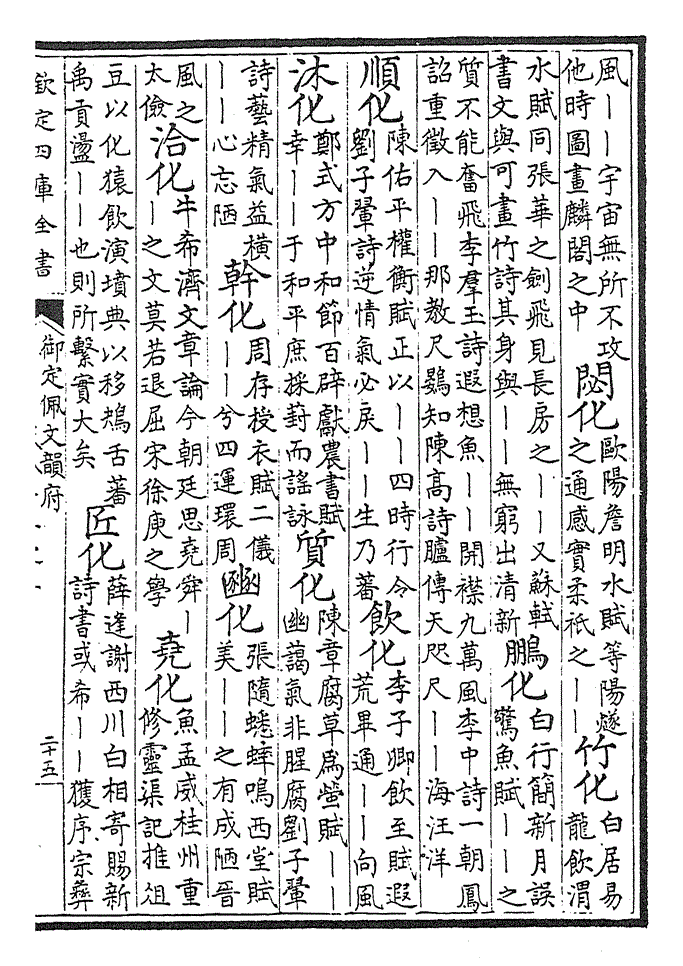 風——宇宙無所不攻
他時圖畫麟閣之中
閟化
歐陽詹明水賦等陽燧
之通感實柔祇之——
竹化
白居易
龍飲渭
水賦同張華之劍飛見長房之——又蘇軾
書文與可畫竹詩其身與——無窮出清新
鵬化
白行簡新月誤
驚魚賦——之
質不能奮飛李羣玉詩遐想魚——開襟九萬風李中詩一朝鳳
詔重徵入——那教尺鷃知陳高詩臚傳天咫尺——海汪洋
順化
陳佑平權衡賦正以——四時行令
劉子翬詩逆情氣必戾——生乃蕃
飲化
李子卿飲至賦遐
荒畢通——向風
沐化
鄭式方中和節百辟獻農書賦
幸——于和平庶採葑而謠詠
質化
陳章腐草爲螢賦——
幽藹氣非腥腐劉子翬
詩藝精氣益橫
——心忘陋
幹化
周存授衣賦二儀
——兮四運環周
豳化
張隨蟋蟀鳴西堂賦
美——之有成陋晉
風之
太儉
洽化
牛希濟文章論今朝廷思堯舜—
—之文莫若退屈宋徐庾之學
堯化
魚孟威桂州重
修靈渠記推俎
豆以化猿飲演墳典以移鴂舌蕃
禹貢盪——也則所繫實大矣
匠化
薛逢謝西川白相寄賜新
詩書或希——獲序宗彝
欽定四庫全書
御定佩文韻府
二十五